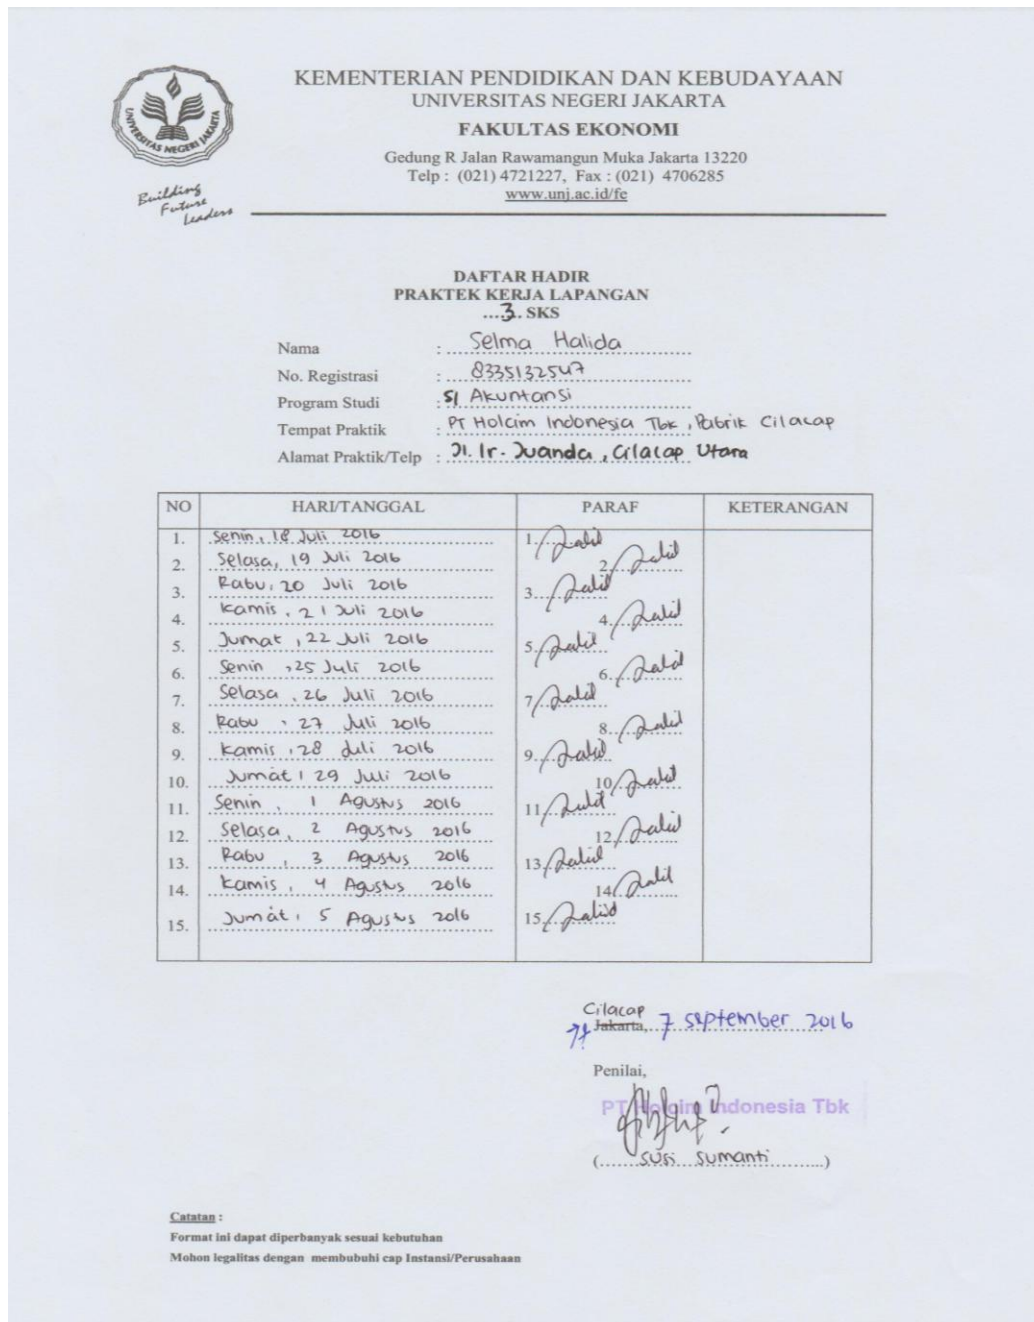 KEMENTERIAN PENDIDIKAN DAN KEBUDAYAAN
UNIVERSITAS NEGERI JAKARTA
FAKULTAS EKONOMI
Gedung R Jalan Rawamangun Muka Jakarta 13220
Telp : (021) 4721227, Fax : (021) 4706285
www.unj.ac.id/fe
UNIVERSITAS NEGERI JAKARTA
Building
Future
Leaders
DAFTAR HADIR
PRAKTEK KERJA LAPANGAN
...3. SKS
Nama : Selma Halida
No. Registrasi : 8335132547
Program Studi : S1 Akuntansi
Tempat Praktik : PT Holcim Indonesia Tbk, Pabrik Cilacap
Alamat Praktik/Telp : Jl. Ir. Juanda, Cilacap Utara
NO HARI/TANGGAL PARAF KETERANGAN
1. Senin, 18 Juli 2016 1.
2. Selasa, 19 Juli 2016 2.
3. Rabu, 20 Juli 2016 3.
4. Kamis, 21 Juli 2016 4.
5. Jumat, 22 Juli 2016 5.
6. Senin, 25 Juli 2016 6.
7. Selasa, 26 Juli 2016 7.
8. Rabu, 27 Juli 2016 8.
9. Kamis, 28 Juli 2016 9.
10. Jumat, 29 Juli 2016 10.
11. Senin, 1 Agustus 2016 11.
12. Selasa, 2 Agustus 2016 12.
13. Rabu, 3 Agustus 2016 13.
14. Kamis, 4 Agustus 2016 14.
15. Jumat, 5 Agustus 2016 15.
Cilacap
Jakarta, 7 September 2016
Penilai,
PT Holcim Indonesia Tbk
(......Susi Sumanti.........)
Catatan :
Format ini dapat diperbanyak sesuai kebutuhan
Mohon legalitas dengan membubuhi cap Instansi/Perusahaan